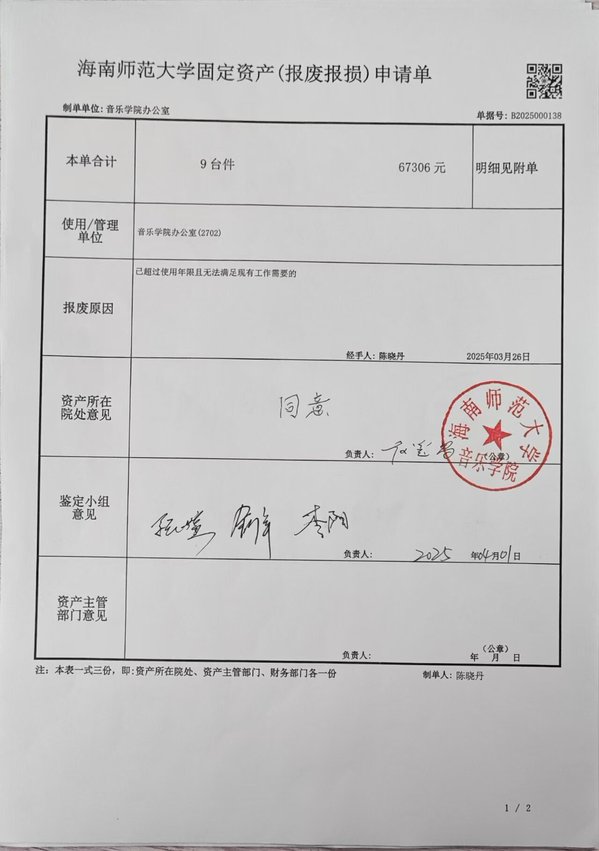 海南师范大学固定资产(报废报损)申请单
制单单位: 音乐学院办公室
单据号: B2025000138
本单合计 9台件 67306 元 明细见附单
使用/管理
单位
音乐学院办公室(2702)
报废原因
已超过使用年限且无法满足现有工作需要的
经手人: 陈晓丹 2025年03月26日
资产所在
院处意见
同意
负责人:
(公章)
海南师范大学
音乐学院
鉴定小组
意见
李阳
负责人: 2025 年04月01日
资产主管
部门意见
(公章)
负责人: 年 月 日
注: 本表一式三份, 即:资产所在院处、资产主管部门、财务部门各一份
制单人: 陈晓丹
1 / 2